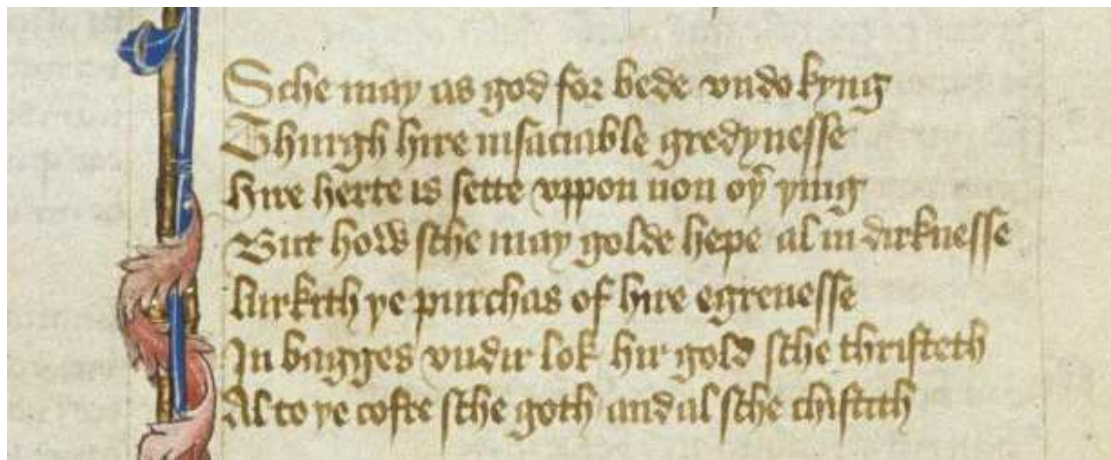 Sche may as god for bede vndo kyng
Thurgh hire insaciable gredynesse
hire herte is sette vppon non oþ̉ þing
But how sche may golde hepe al in dirknesse
lurkith þe purchas of hire egrenesse
In bagges vndir lok hir gold sche thrifteth
Al to þe cofre sche goth and al sche chiftith